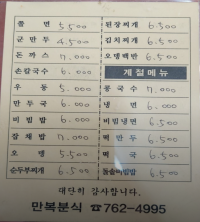 쫄면 5.500 된장찌개 6.500
군만두 4.500 김치찌개 6.500
돈까스 7.000 오뎅백반 6.500
손칼국수 6.000 계절메뉴
우동 5.000 콩국수 7.000
만두국 6.000 냉면 6.000
비빔밥 6.000 비빔냉면 6.500
잡채밥 7.000 떡만두 6.500
오뎅 5.500 떡국 6.500
순두부찌개 6.500 돌솥비빔밥 6.500
대단히 감사합니다.
만복분식 ☎762-4995